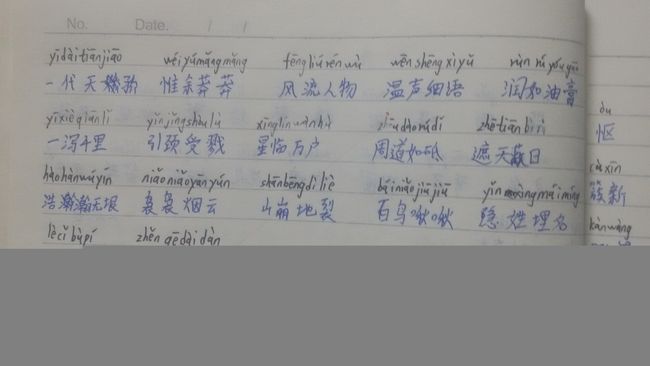 No. Date. / /
yīdàitiānjiāo wéiyúmǎngmǎng fēngliúrénwù wēnshēngxìyǔ rùnrúyóugāo
一代天骄 惟余莽莽 风流人物 温声细语 润如油膏
yīxièqiānlǐ yǐnjǐngshòulù xīnglínwànhù zhōudàorúdǐ zhētiānbìrì
一泻千里 引颈受戮 星临万户 周道如砥 遮天蔽日
hàohànwúyín niǎoniǎoyānyún shānbēngdìliè bǎiniǎojiūjiū yǐnxìngmáimíng
浩瀚无垠 袅袅烟云 山崩地裂 百鸟啾啾 隐姓埋名
lècǐbùpí zhěngēdàidàn
òu
怄
cùxīn
簇新
kànwàng